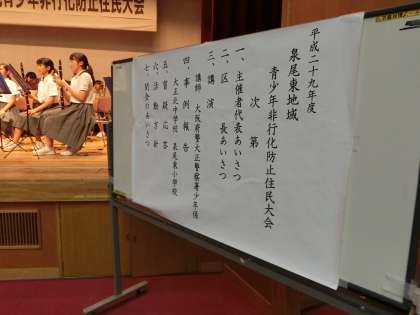 青少年非行化防止住民大会
平成二十九年度
泉尾東地域
青少年非行化防止住民大会
次第
一、主催者代表あいさつ
二、区長あいさつ
三、講演
講師 大阪府警大正警察署少年係
四、事例報告
大正北中学校 泉尾東小学校
五、質疑応答
六、活動方針
七、閉会のあいさつ